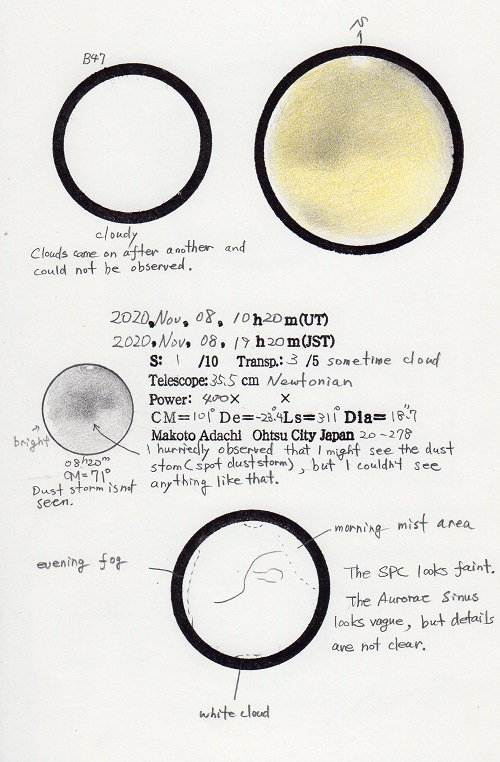 S
B47
cloudy
Clouds came on after another and
could not be observed.
2020, Nov, 08, 10h20m(UT)
2020, Nov, 08, 19h20m(JST)
S: 1 /10 Transp.: 3 /5 sometime cloud
Telescope: 35.5 cm Newtonian
Power: 400× ×
CM=101° De=-23.4° Ls=311° Dia=18.7"
Makoto Adachi Ohtsu City Japan 20-278
bright
08h20m
CM=71°
Dust storm is not
seen.
I hurriedly observed that I might see the dust
stom (spot dust storm), but I couldn't see
anything like that.
morning mist area
evening fog
The SPC looks faint.
The Aurorae Sinus
looks vague, but details
are not clear.
white cloud